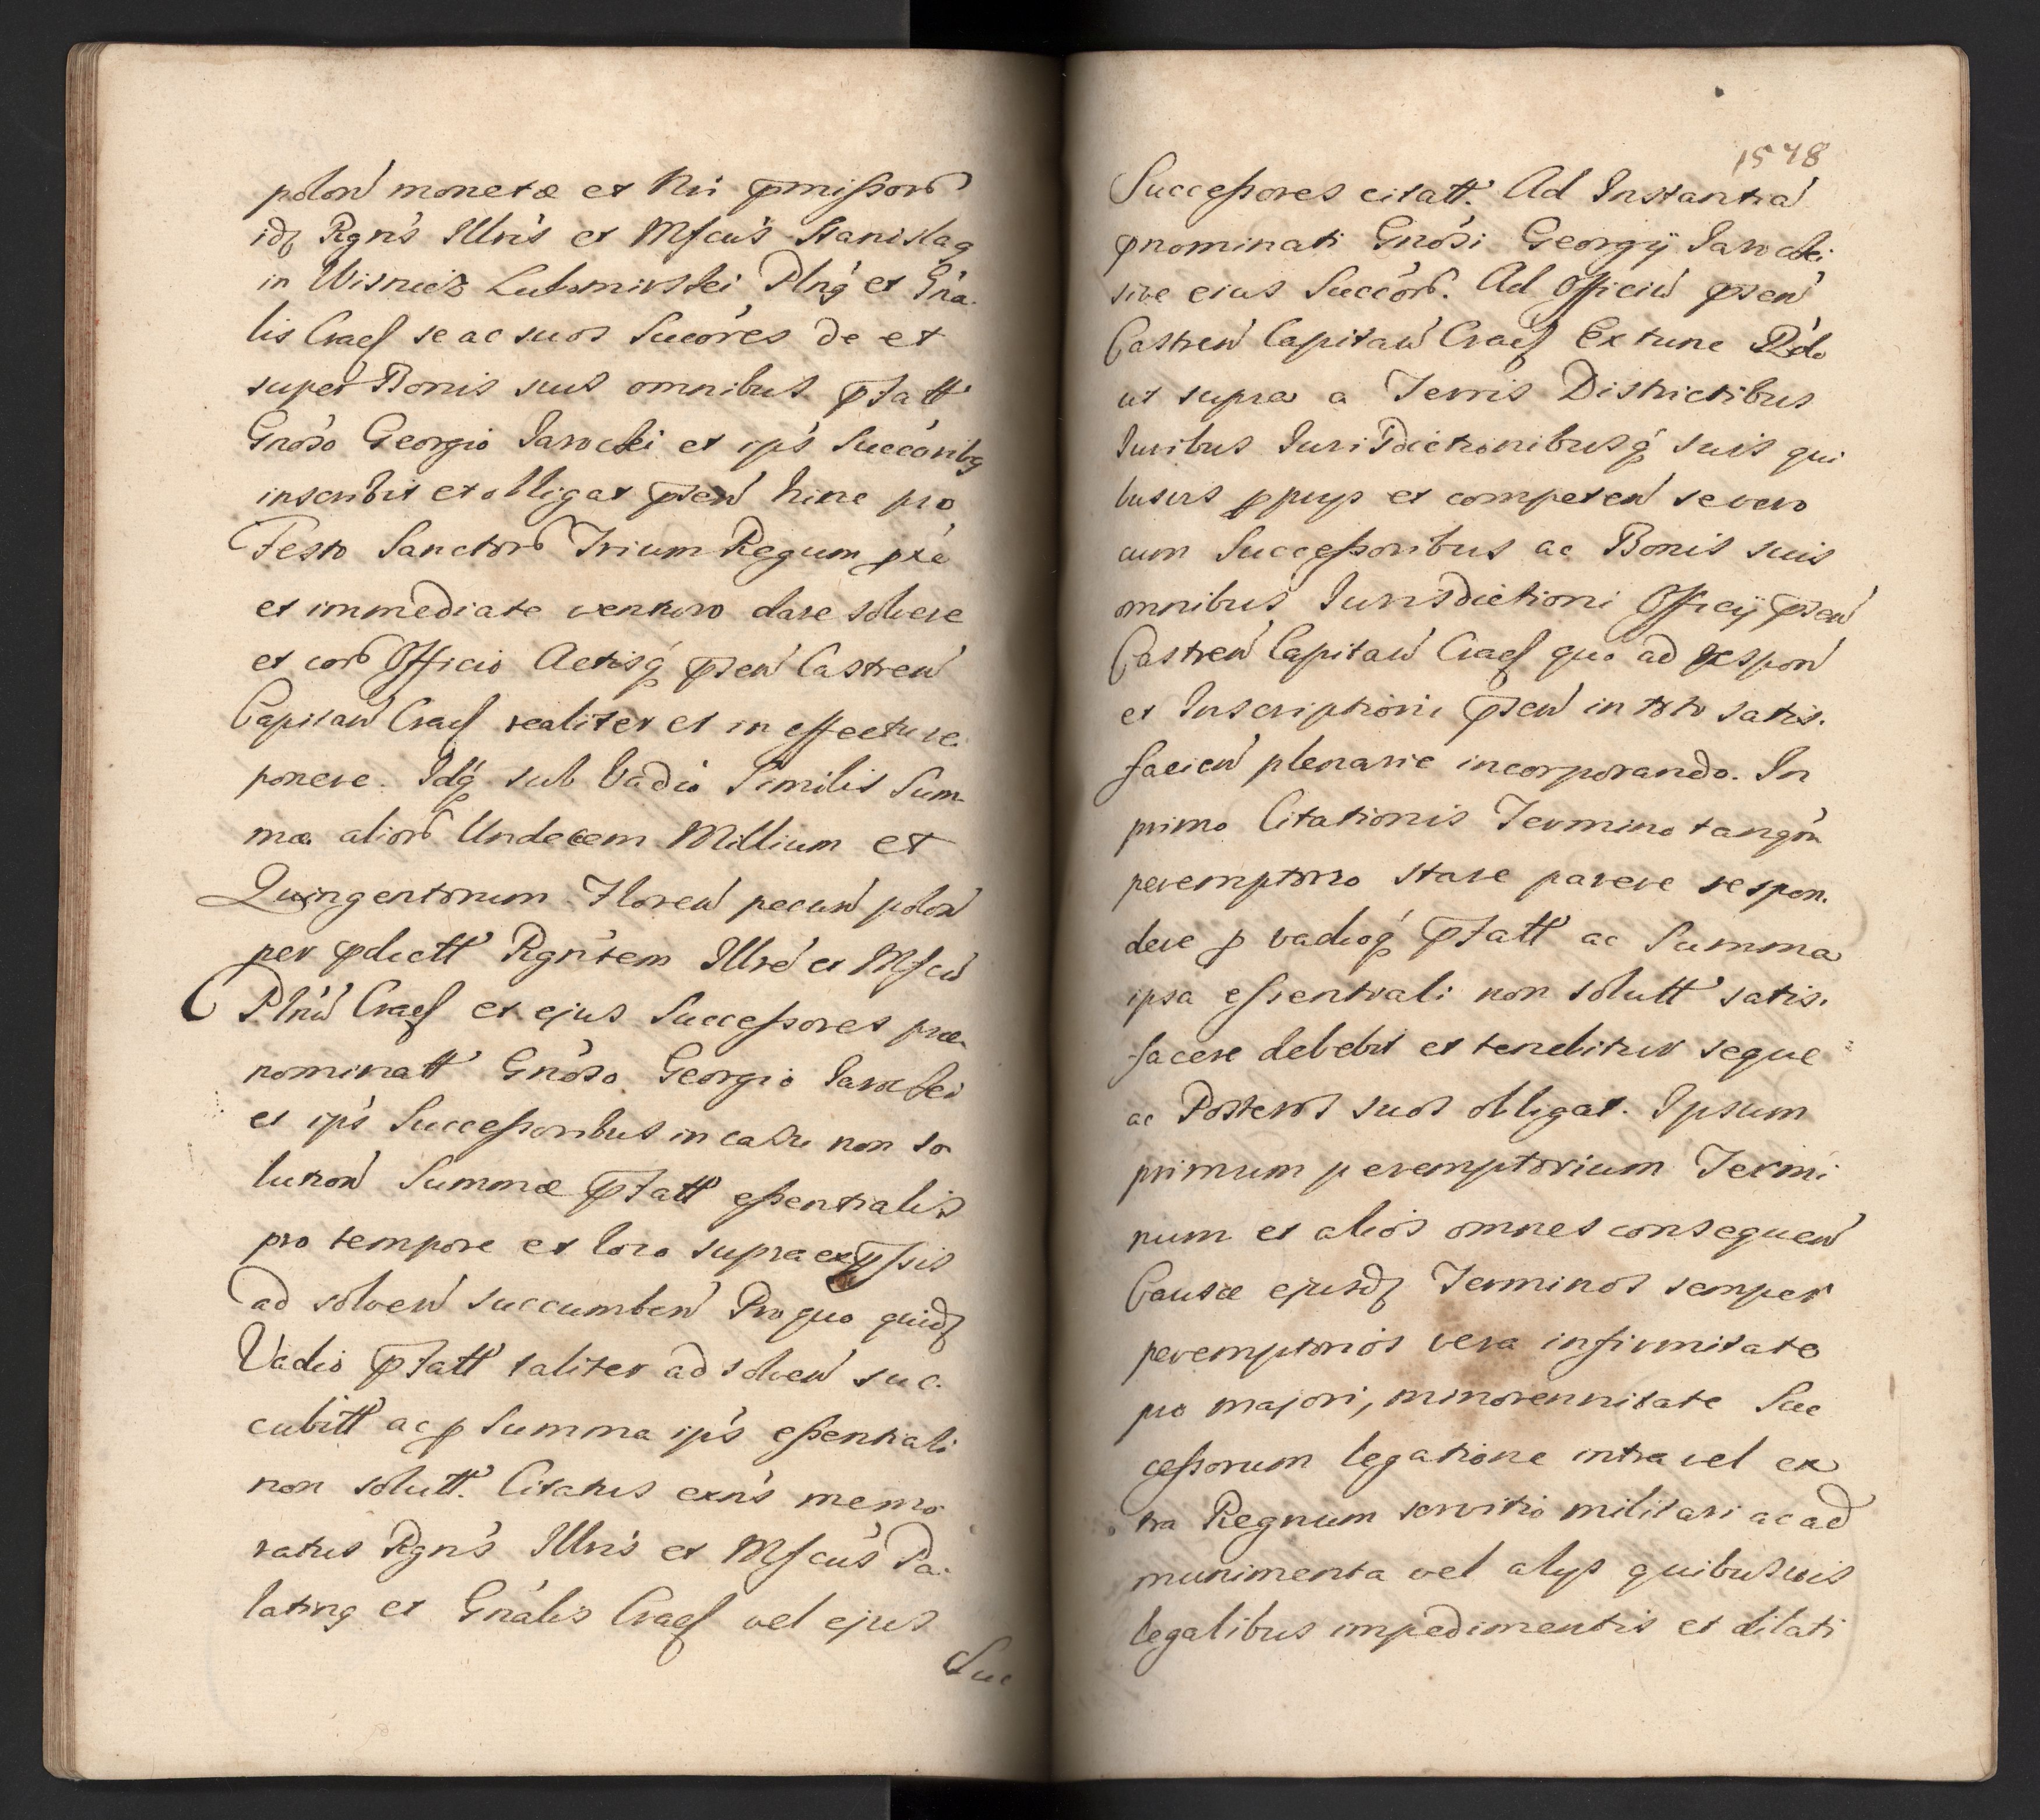 polon̄ monetæ et Nri p̄missorū
idq Rgn̄s Illrı̄s et Mfcus Stanislaq
in Wisnicz Lubomirski Plnq̄ et Gna-
lis Cracſ se ac suos Succōres de et
super Bonis suis omnibus p̄fatt
Gnōso Georgio Jarocki et ip̄s Succōribq
inscribit et obligat p̄sen̄ hinc pro
Festo Sanctorū Trium Regum pxē
et immediate venturo dare solvere
et corā Officio Actisq̄ p̄sen̄ Castren̄
Capitan̄ Cracſ realiter et in effectu re-
ponere. Idq̄ sub Vadio Similis Sum-
mæ aliorū Undecem Millium et
Quingentorum Floren̄ pecun̄ polon̄
per p̄dictt Rgn̄tem Illrē et Mfcū
Plnū Cracſ et ejus Successores præ-
nominatt Gnōso Georgio Jarocki
et ip̄s Successoribus in casu non so-
lution̄ Summæ p̄fatt essentialis
pro tempore et loco supra exp̄ssis
ad solven̄ succumben̄ Pro quo quidq
Vadio p̄fatt taliter ad solven̄ suc-
cubitt ac p Summa ip̄s essentiali
non solutt. Citatus exn̄s memo-
ratus Rgn̄s Illrı̄s et Mfcus Pa-
latinq et Gnālis Cracſ vel ejus
Suc
1548
Successores citatt. Ad Instantiā
p̄nominati Gnōsi Georgij Jarocki
sive ejus Succōrū. Ad Officiū p̄sen̄
Castren̄ Capitan̄ Cracſ Ex tunc
ut supra a Terris Districtibus
Juribus Jurisdictionibusq̄ suis qui
busvis pprijs et competen̄ se vero
cum Successoribus ac Bonis suis
omnibus Jurisdictioni Officij p̄sen̄
Castren̄ Capitan̄ Cracſ quo ad respon̄
et Inscriptioni p̄sen̄ in toto satis-
facien̄ plenarie incorporando. In
primo Citationis Termino tanq̄m
peremptorio stare parere respon-
dere p vadioq̄ p̄fatt ac Summa
ipsa essentiali non solutt satis-
facere debebit et tenebitur seque
ac Posteros suos obligat. Ipsum
primum peremptorium Termi
num et alios omnes consequen̄
Causæ ejusdq Terminos semper
peremptorios vera infirmitate
pro majori, minorennitate Suc
cessorum legatione intra vel ex
tra Regnum servitio militari ac ad
munimenta vel alijs quibusvis
legalibus impedimentis et dilati